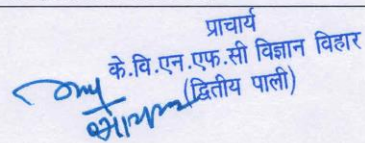 प्राचार्य
के.वि.एन.एफ.सी विज्ञान विहार
(द्वितीय पाली)